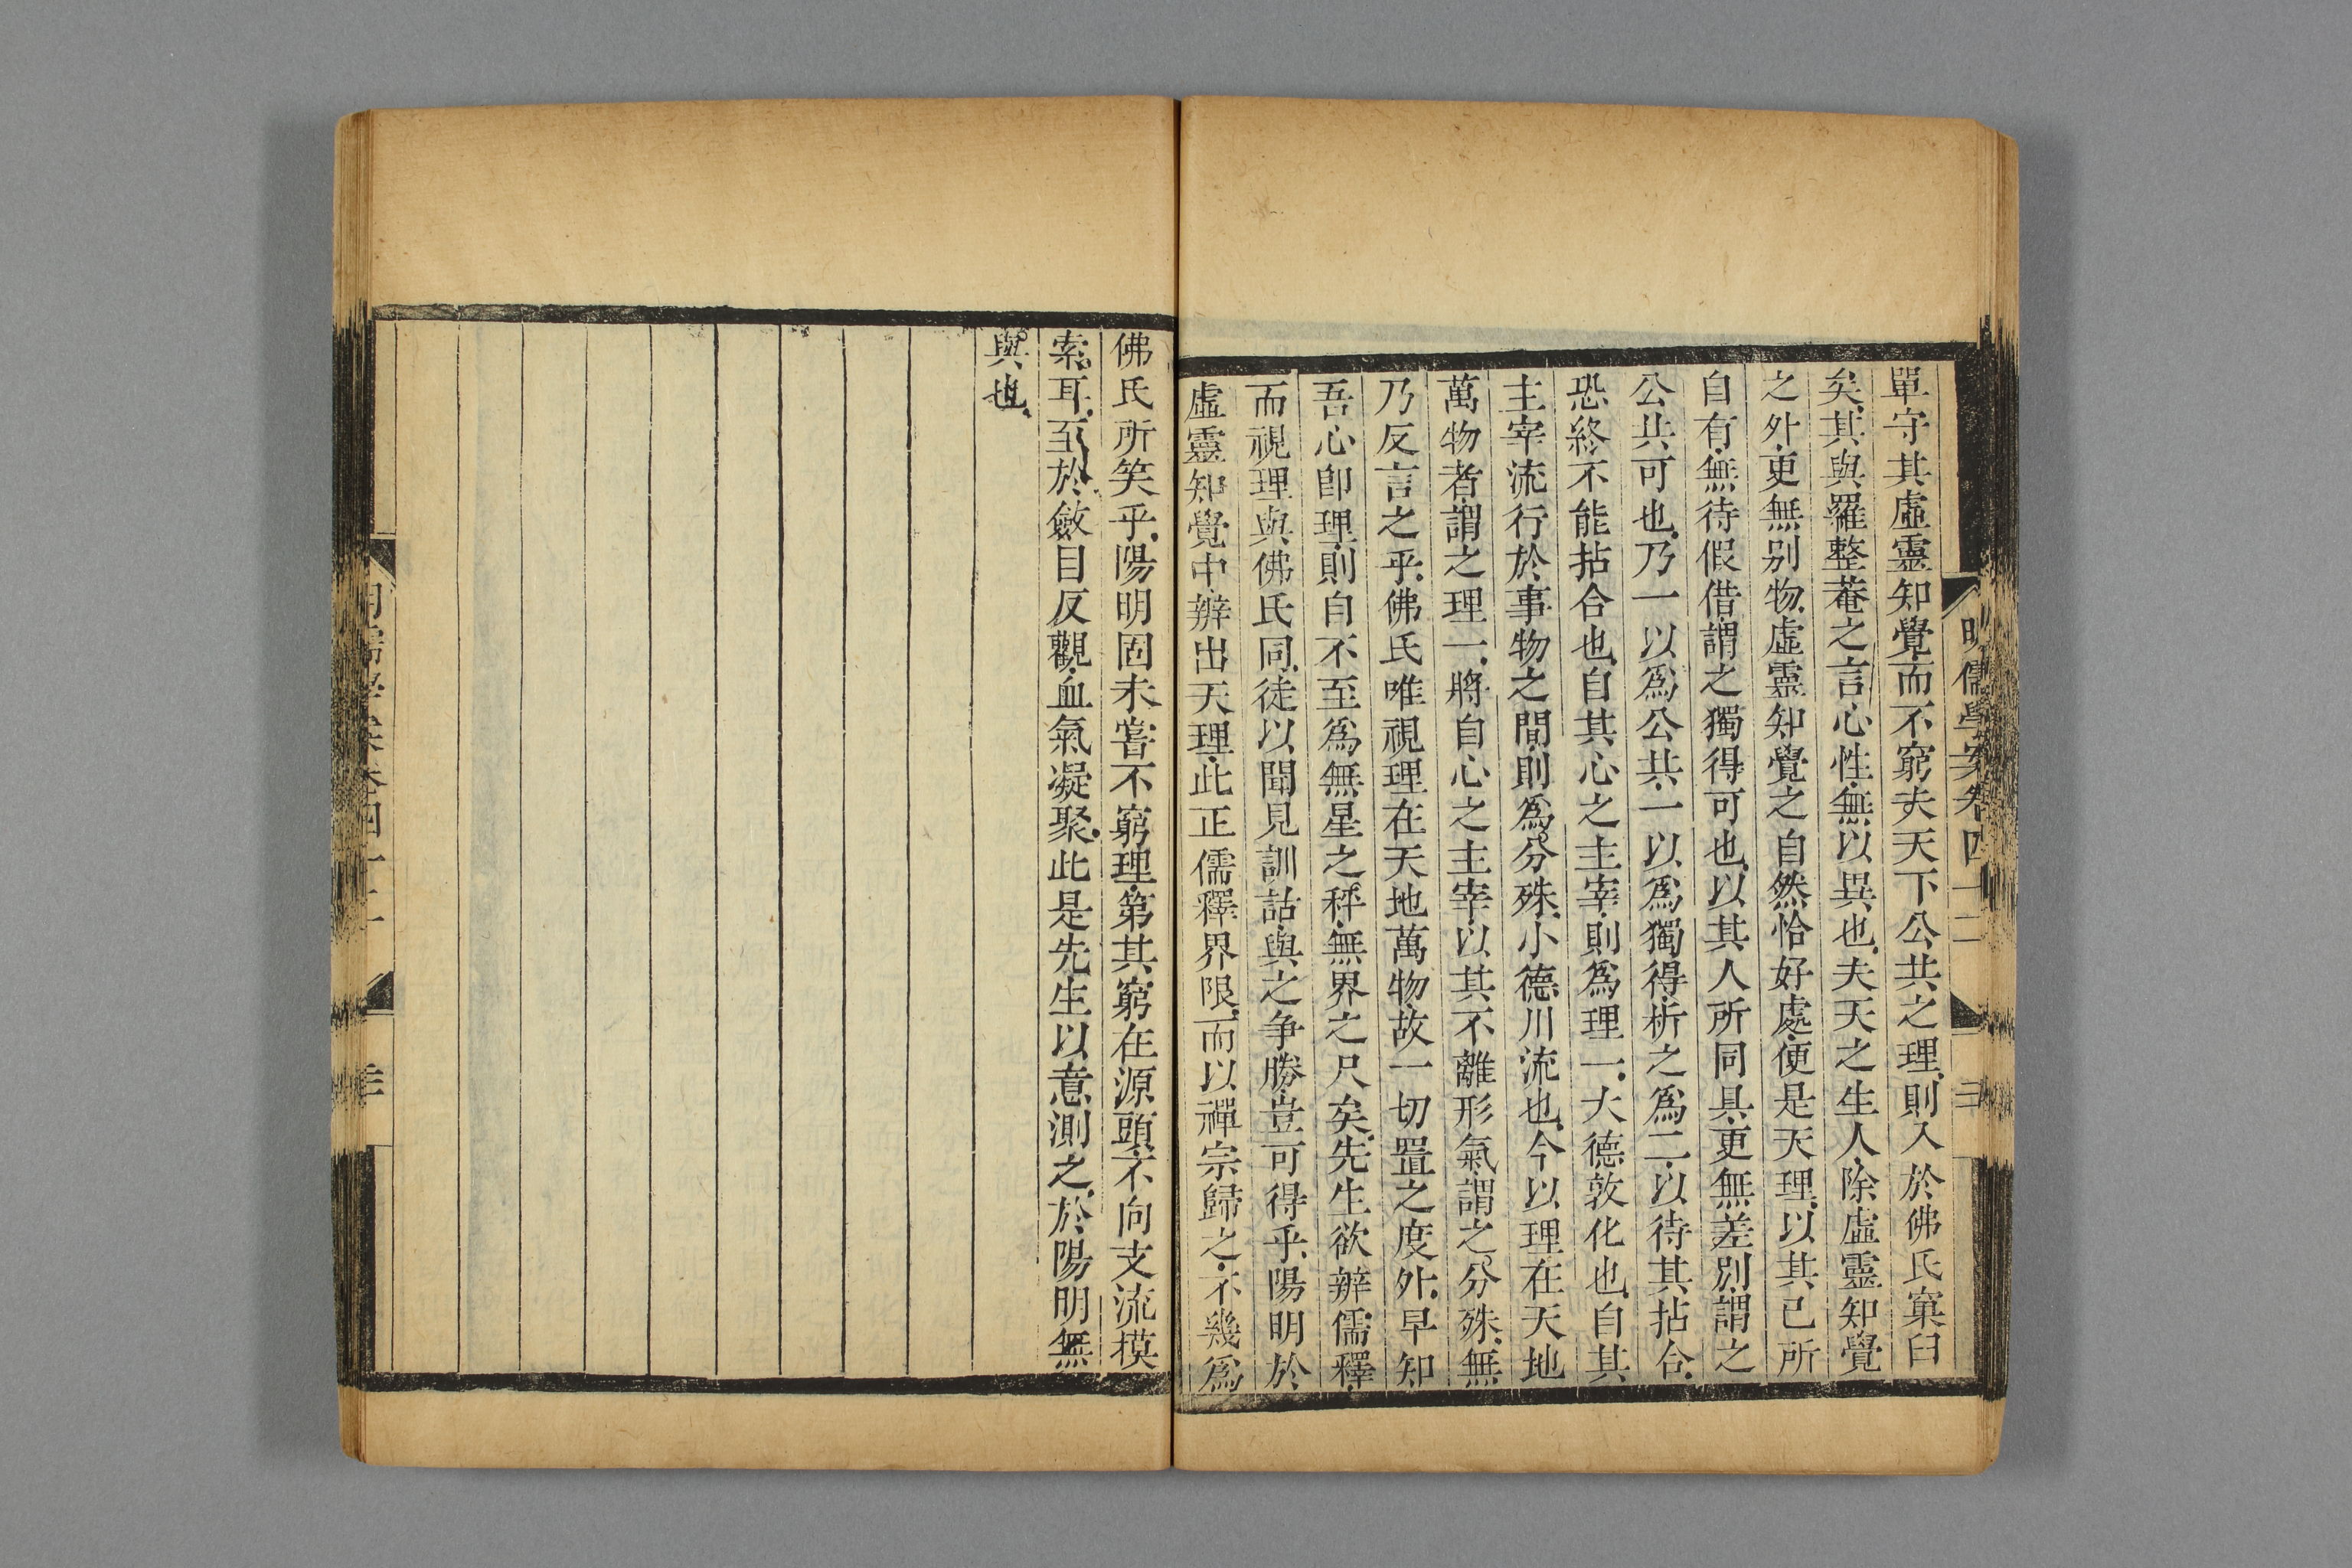 明儒學案卷四十二
三
單守其虛靈知覺而不窮夫天下公共之理則入於佛氏窠臼
矣其與羅整菴之言心性無以異也夫天之生人除虛靈知覺
之外更無别物虛靈知覺之自然恰好處便是天理以其己所
自有無待假借謂之獨得可也以其人所同具更無差別謂之
公共可也乃一以爲公共一以爲獨得析之爲二以待其拈合
恐終不能拈合也自其心之主宰則爲理一大德敦化也自其
主宰流行於事物之間則爲分殊小德川流也今以理在天地
萬物者謂之理一將自心之主宰以其不離形氣謂之分殊無
乃反言之乎佛氏唯視理在天地萬物故一切置之度外早知
吾心卽理則自不至爲無星之秤無界之尺矣先生欲辨儒釋
而視理與佛氏同徒以聞見訓詁與之争勝豈可得乎陽明於
虛靈知覺中辨出天理此正儒釋界限而以禪宗歸之不幾爲
佛氏所笑乎陽明固未嘗不窮理第其窮在源頭不向支流摸
索耳至於斂目反觀血氣凝聚此是先生以意測之於陽明無
與也